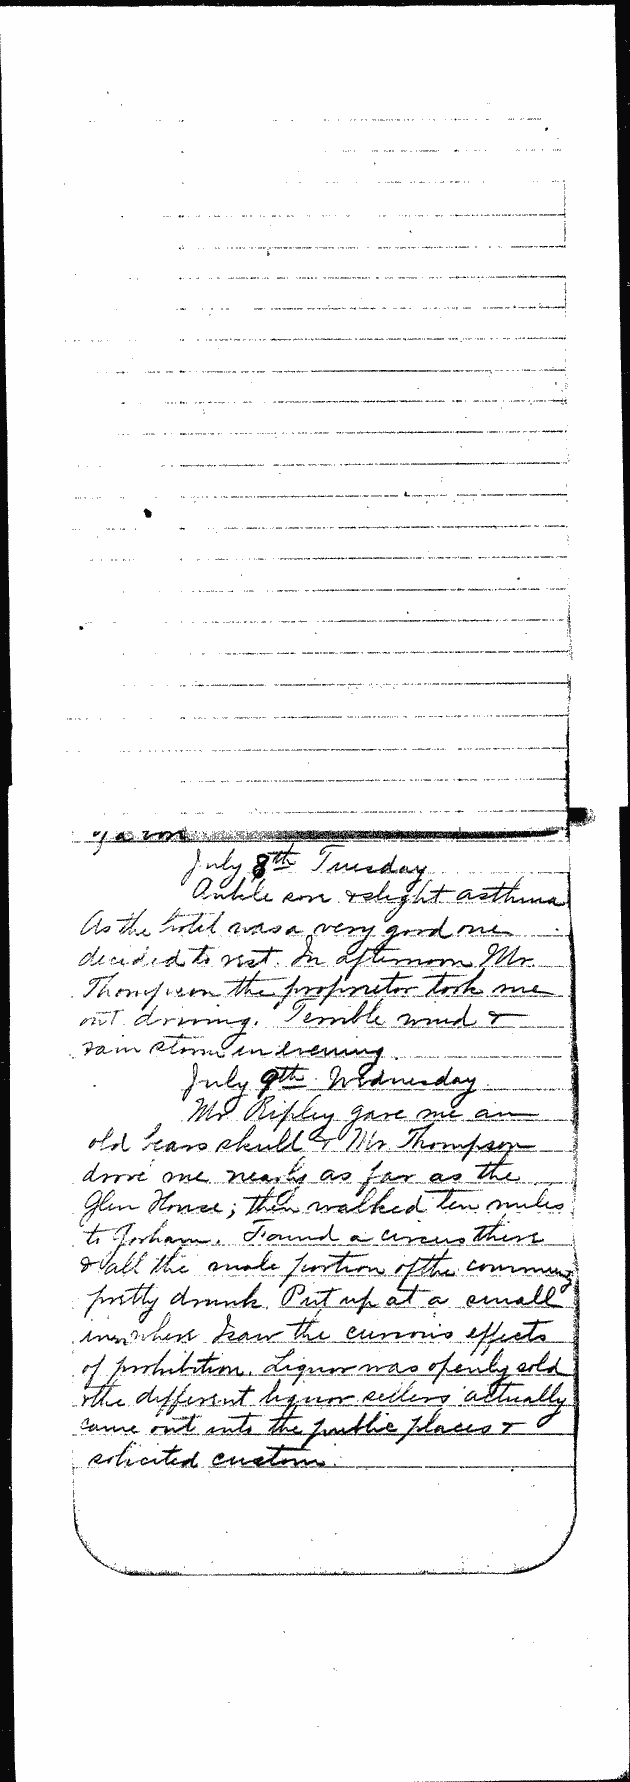 July 8th Tuesday
Ankle sore & slight asthma
As the hotel was a very good one
decided to rest. In afternoon Mr.
Thompson the proprietor took me
out driving. Terrible wind &
rain storm in evening.
July 9th Wednesday
Mr Ripley gave me an
old bears skull & Mr Thompson
drove me nearly as far as the
Glen House; then walked ten miles
to Gorham. Found a circus there
& all the male portion of the community
pretty drunk. Put up at a small
inn where I saw the curious effects
of prohibition. Liquor was openly sold
& the different liquor sellers actually
came out into the public places &
solicited custom.